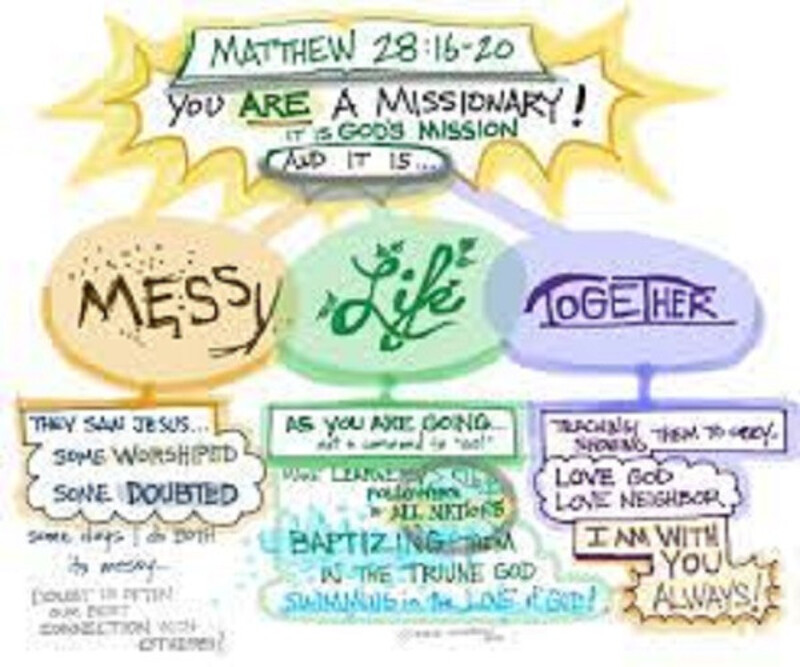 MATTHEW 28:16-20
YOU ARE A MISSIONARY!
IT IS GOD'S MISSION
AND IT IS...
MESSY
Life
TOGETHER
THEY SAW JESUS...
SOME WORSHIPED
SOME DOUBTED
some days I do BOTH
its messy...
DOUBT IS OFTEN
OUR BEST
CONNECTION WITH
OTHERS!
AS YOU ARE GOING...
not a command to "GO!"
FOLLOWERS
ALL NATIONS
BAPTIZING THEM
IN THE TRIUNE GOD
SWIMMING in the LOVE of GOD!
TEACHING
SHOWING THEM TO OBEY..
LOVE GOD
LOVE NEIGHBOR
I AM WITH
YOU
ALWAYS!